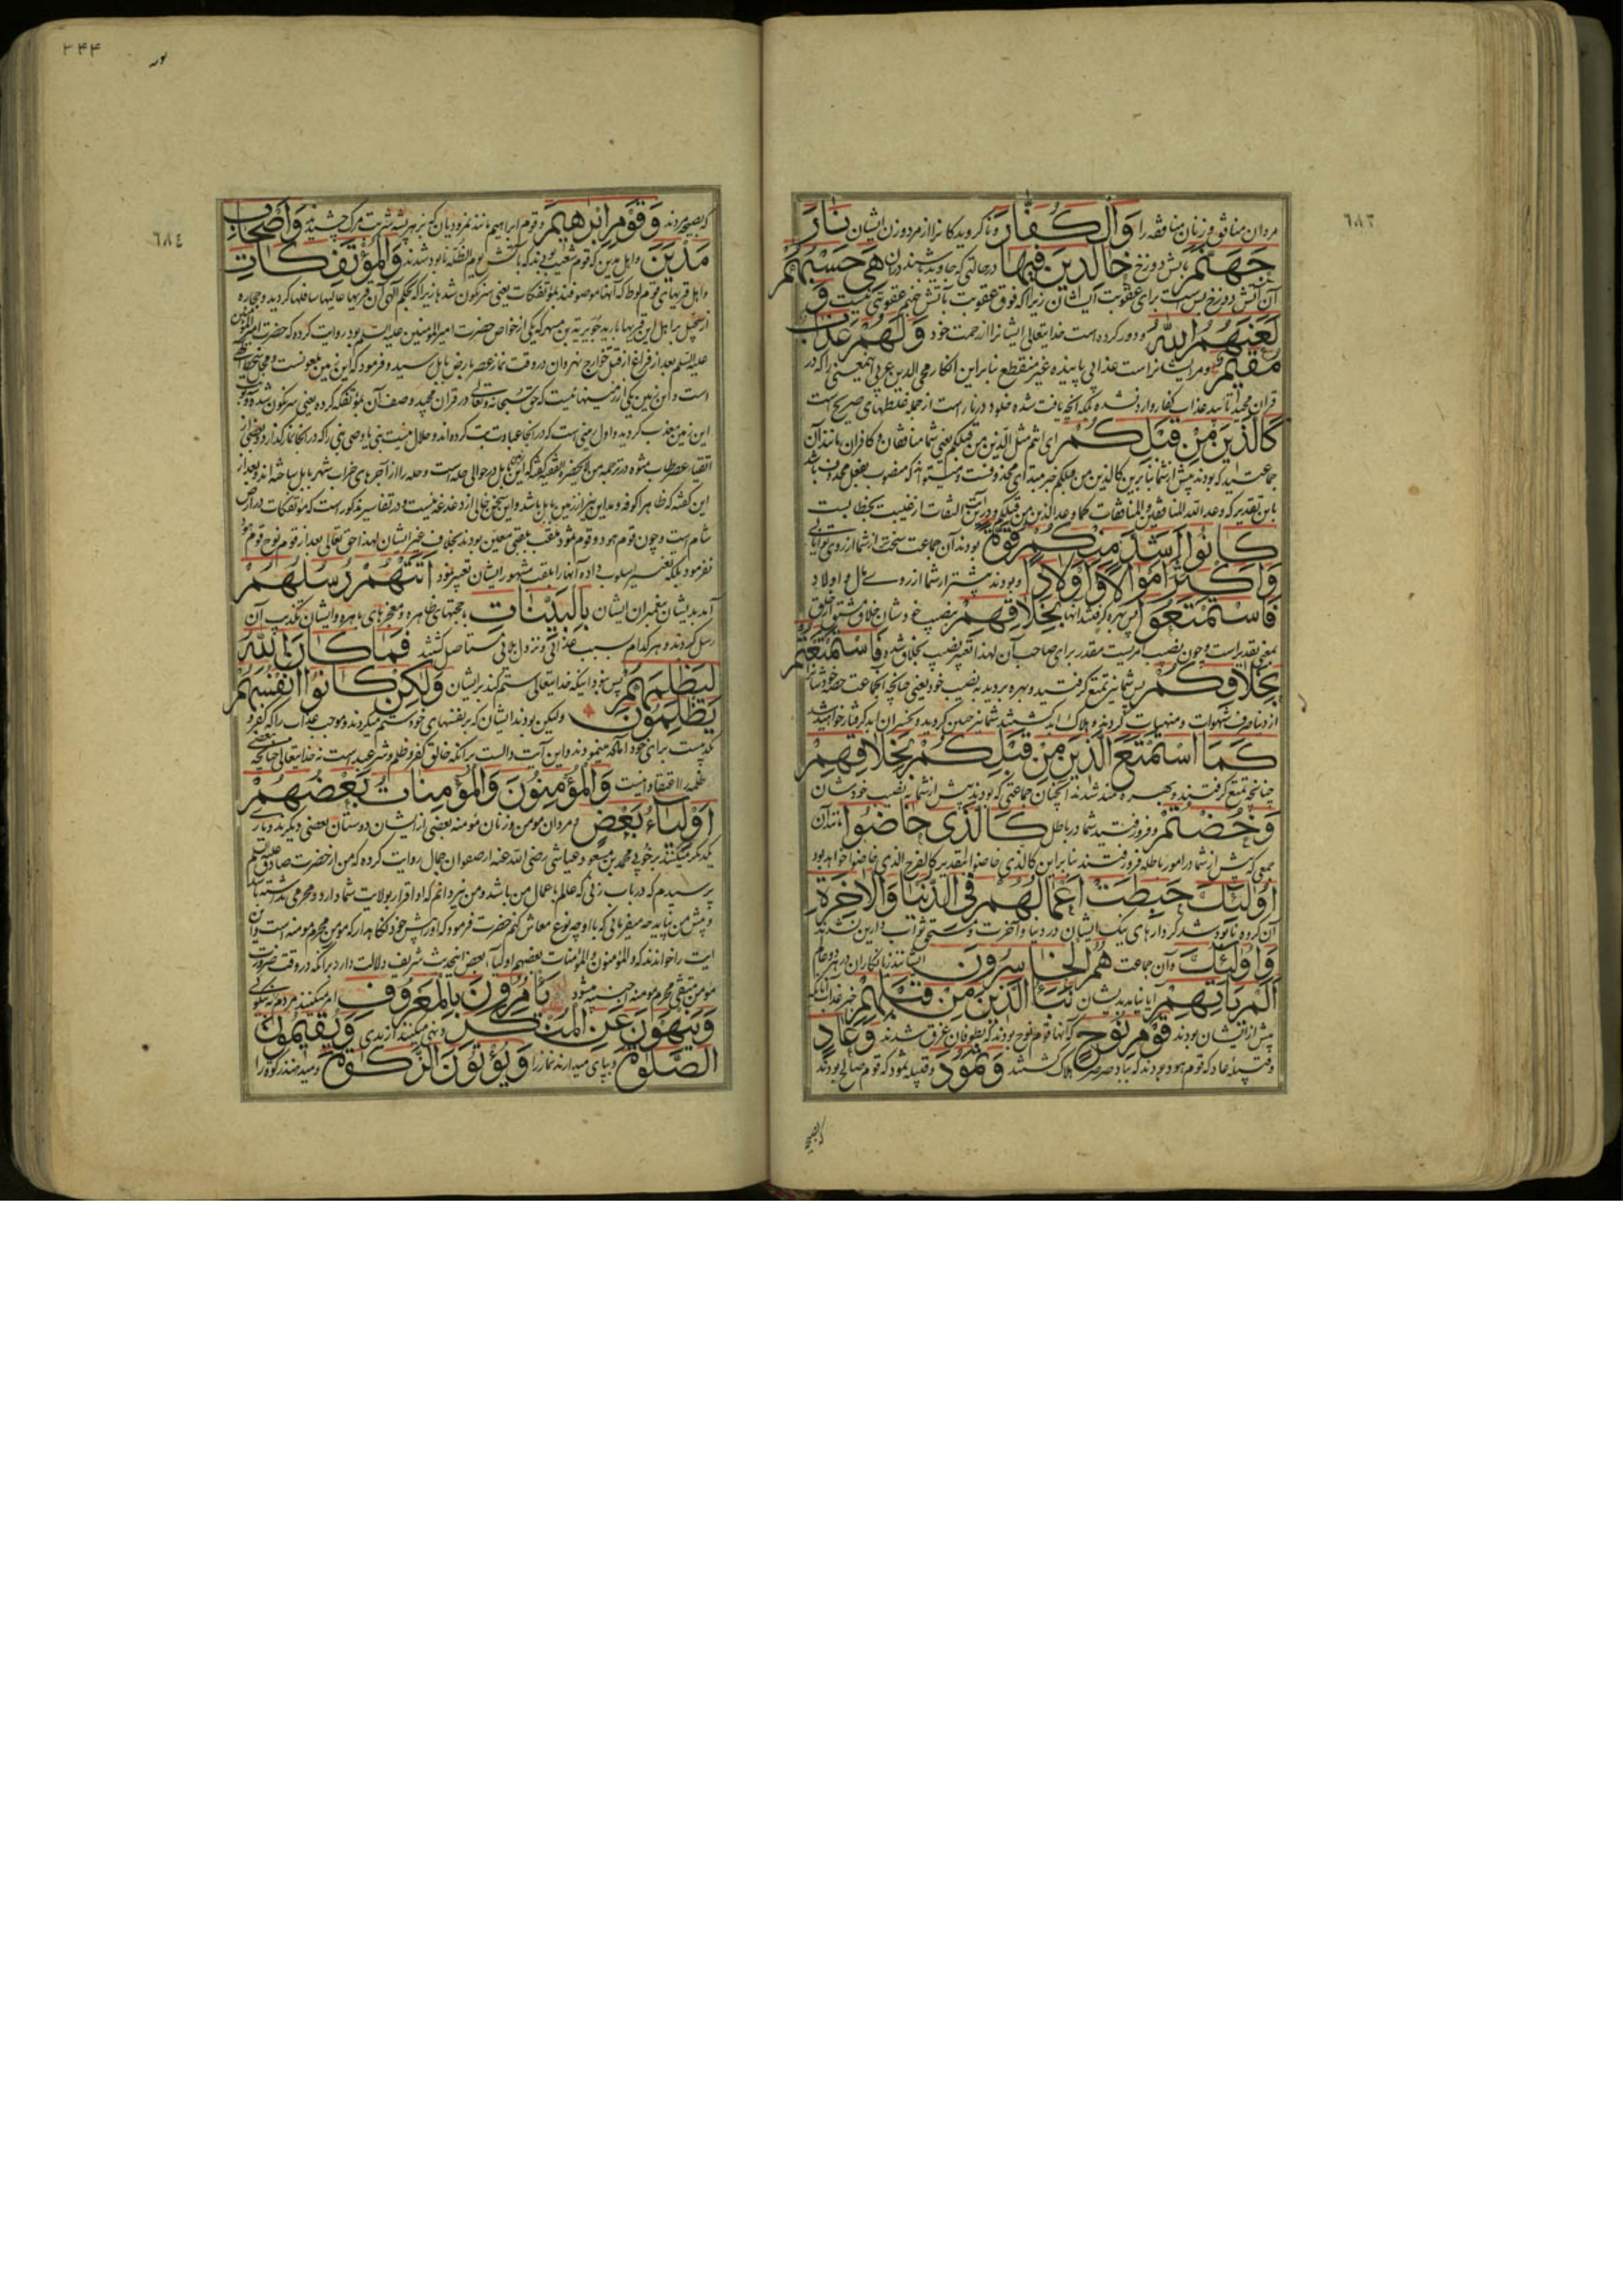 ٦٨٣
مردان منافق و زنان منافقه را وَالْكُفَّارَ و ناگرویدگانرا از مرد و زن ایشان نَارَ
جَهَنَّمَ بآتش دوزخ خَالِدِينَ فِيهَا در حالتی که جاوید باشند در آن هِيَ حَسْبُهُمْ
آن آتش دوزخ بس است برای عقوبت ایشان زیرا که فوق عقوبت بآتش جهنم عقوبتی نیست وَ
لَعَنَهُمُ اللهُ و دور کرده است خدایتعالی ایشانرا از رحمت خود وَلَهُمْ عَذَابٌ
مُقِيمٌ و مر ایشانراست عذابی پاینده غیر منقطع بنابراین انکار محی الدین عربی اینمعنی را که در
قرآن مجید تأبید عذاب کفار وارد نشده بلکه آنچه یافت شده خلود در نار است از جمله غلطهای صریح است
كَالَّذِينَ مِنْ قَبْلِكُمْ ای انتم مثل الذین من قبلکم یعنی شما منافقان و کافران مانند آن
جماعتید که بودند پیش از شما بنابرین کالذین من قبلکم خبر مبتدای محذوفست و میتواند که منصوب بفعل محذوف باشد
باین تقدیر که وعد الله المنافقین والمنافقات کما وعد الذین من قبلکم و در این التفات از غیبت بخطابست
كَانُوا أَشَدَّ مِنْكُمْ قُوَّةً بودند آن جماعت سخت‌تر از شما از روی توانایی
وَأَكْثَرَ أَمْوَالًا وَأَوْلَادًا و بودند بیشتر از شما از روی مال و اولاد
فَاسْتَمْتَعُوا پس بهره گرفتند آنها بِخَلَاقِهِمْ بنصیب خودشان خلاق مشتق از خلق
بمعنی تقدیر است و چون نصیب امریست مقدر برای صاحب آن لهذا تعبیر نصیب بخلاق شده فَاسْتَمْتَعْتُمْ
بِخَلَاقِكُمْ پس شما نیز تمتع گرفتید و بهره بردید به نصیب خود یعنی چنانچه آنجماعت
از دنیا صرف شهوات و منهیات کردند و هلاک ابد گشتند شما نیز چنین کردید و بخسران ابد گرفتار خواهید شد
كَمَا اسْتَمْتَعَ الَّذِينَ مِنْ قَبْلِكُمْ بِخَلَاقِهِمْ
چنانچه تمتع گرفتند و بهره‌مند شدند آنچنان جماعتی که بودند پیش از شما به نصیب خودشان
وَخُضْتُمْ و فرو رفتید شما در باطل كَالَّذِي خَاضُوا مانند آن
جمعی که پیش از شما در امور باطله فرو رفتند بنابراین کالذی خاضوا بتقدیر کالفوج الذی خاضوا خواهد بود
أُولَئِكَ حَبِطَتْ أَعْمَالُهُمْ فِي الدُّنْيَا وَالْآخِرَةِ
آن گروه نابود شد کردارهای نیک ایشان در دنیا و آخرت و مستحق ثواب دارین نشدند
وَأُولَئِكَ و آن جماعت هُمُ الْخَاسِرُونَ ایشانند زیانکاران در هر دو عالم
أَلَمْ يَأْتِهِمْ آیا نیامد بدیشان نَبَأُ الَّذِينَ مِنْ قَبْلِهِمْ خبر عذاب آنانکه
پیش از ایشان بودند قَوْمِ نُوحٍ که آنها قوم نوح بودند که بطوفان غرق شدند وَعَادٍ
و قبیله عاد که قوم هود بودند که بباد صرصر هلاک گشتند وَثَمُودَ و قبیله ثمود که قوم صالح بودند
که بصیحه
٣٤٤
٦٨٤
که بصیحه مردند وَقَوْمِ إِبْرَاهِيمَ و قوم ابراهیم مانند نمرودیان که بنیش پشه شربت مرگ چشیدند وَأَصْحَابِ
مَدْيَنَ و اهل مدین که قوم شعیب بودند که بآتش یوم الظله نابود شدند وَالْمُؤْتَفِكَاتِ
و اهل قریهای قوم لوط که آنها موصوفند بمؤتفکات یعنی سرنگون شدها زیرا که بحکم الهی آن قریها عالیها سافلها گردید و حجاره
از سجیل بر اهل این قریها بارید جویریة بن مسهر که یکی از خواص حضرت امیرالمومنین علیه السلم بود روایت کرده که حضرت امیرالمومنین
علیه السلم بعد از فراغ از قتل خوارج نهروان در وقت نماز عصر بارض بابل رسید و فرمود که این زمین ملعونست
است و این زمین یکی از زمینهائیست که حق سبحانه و تعالی در قرآن مجید وصف آن بمؤتفکه کرده یعنی سرنگون شده
این زمین معذب گردید و اول زمینی است که در آنجا عبادت بت کرده‌اند و حلال نیست نبی یا وصی نبی را که در آنجا نماز گذارد و بعضی از
این گفته که ظاهرا کوفه و مداین نیز از زمین بابل باشد و این سخن خالی از دغدغه نیست و در تفاسیر مذکور است که مؤتفکات در ارض
شام است و چون قوم هود و قوم ثمود ملقب بلقبی معین بودند بخلاف غیر ایشان لهذا حق تعالی بعد از قوم نوح قوم هود
نفرمود بلکه تغییر اسلوب داده آنها را بلقب مشهور ایشان تعبیر نمود أَتَتْهُمْ رُسُلُهُمْ
آمدند بدیشان پیغمبران ایشان بِالْبَيِّنَاتِ بحجتهای ظاهره و معجزهای باهره و ایشان تکذیب آن
رسل کردند و هر کدام بسبب عذابی و نزول بلائی مستأصل گشتند فَمَا كَانَ اللهُ
لِيَظْلِمَهُمْ پس نبود اینکه خدایتعالی ستم کند بر ایشان وَلَكِنْ كَانُوا أَنْفُسَهُمْ
يَظْلِمُونَ ولیکن بودند ایشان که بر نفسهای خود ستم میکردند و موجب عذاب را که کفر و
تکذیبست برای خود آماده مینمودند و این آیت دالست بر آنکه خالق کفر و ظلم و شر عبد است نه خدایتعالی چنانچه بعضی
ظلمه را اعتقاد اینست وَالْمُؤْمِنُونَ وَالْمُؤْمِنَاتُ بَعْضُهُمْ
أَوْلِيَاءُ بَعْضٍ و مردان مومن و زنان مومنه بعضی از ایشان دوستان بعضی دیگرند و یاری
یکدیگر میکنند بر خوبی محمد بن مسعود عیاشی رضی الله عنه از صفوان جمال روایت کرده که من از حضرت صادق علیه السلم
پرسیدم که در باب زنی که عالم باعمال من باشد و من نیز دانم که او اقرار بولایت شما دارد و محرمی نداشته باشد
و پیش من بیاید چه میفرمائی که با او چه نوع معاش کنم حضرت فرمود که او را پیش خود نگاهدار که مومن محرم مومنه است و این
آیت را خواندند که والمؤمنون والمؤمنات بعضهم اولیاء بعض اینحدیث شریف دلالت دارد بر آنکه در وقت ضرورت
مومن متقی محرم مومنه اجنبیه میشود يَأْمُرُونَ بِالْمَعْرُوفِ امر میکنند مردم به نیکوئی
وَيَنْهَوْنَ عَنِ الْمُنْكَرِ و نهی میکنند از بدی وَيُقِيمُونَ
الصَّلَوٰةَ و بپای میدارند نماز را وَيُؤْتُونَ الزَّكَوٰةَ و میدهند زکوة را